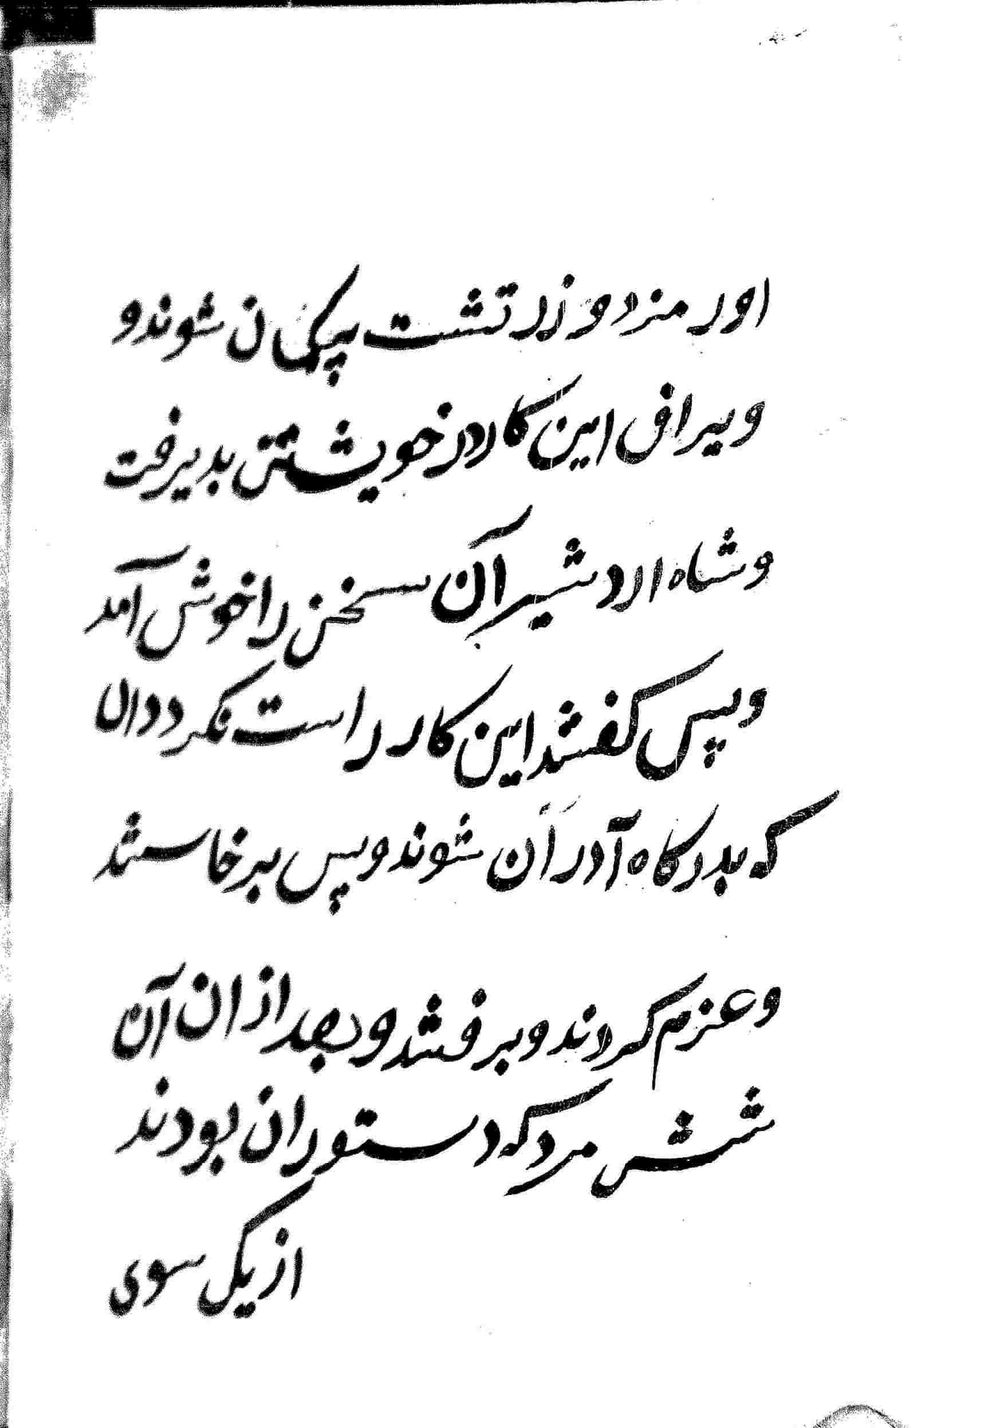 اورمزد و زرتشت بیکی ن شوند و
ویراف این کار در خویشتن بدیرفت
و شاه اردشیر آن سخن را خوش آمد
و پس کفشد این کار راست نکردد ال
که بدرکاه آدران شوند و پس برخاستند
و عزم کردند و برفشد و بعد از ان آن
شش مرد که دستوران بودند
از یکی سوی